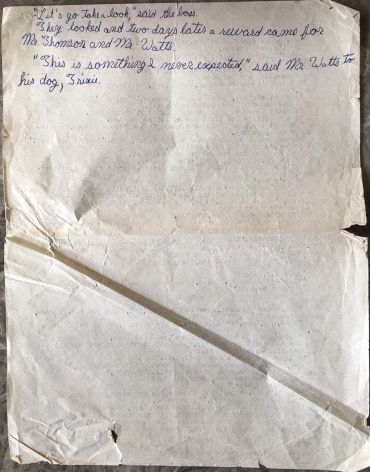 "Let's go take a look," said the boss.
They looked and two days later a reward came for
Mr. Thomson and Mr. Watts.
"This is something I never expected," said Mr. Watts to
his dog, Trixie.